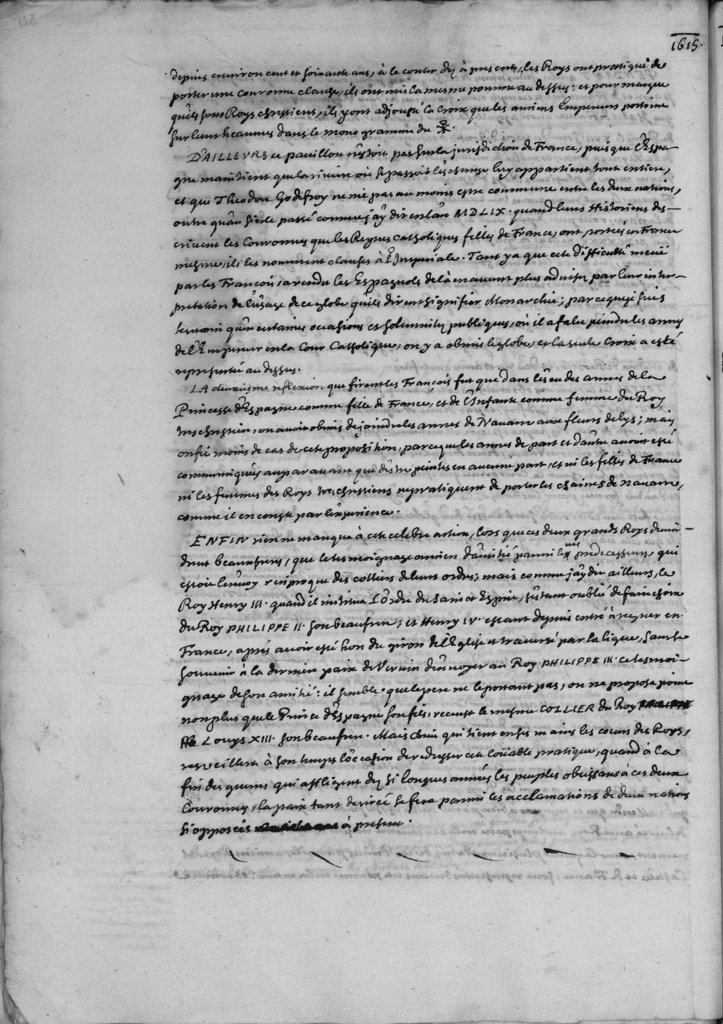 1615.
depuis environ cent et soixante ans, à le conter dez à present, les Roys ont pratiqué de
porter une couronne clause, ils ont mis la mesme pomme au dessus: et pour marque
qu'ils sont Roys chrestiens, ils y ont adjousté la Croix que les anciens Empereurs portoient
sur leurs heaumes dans le monogramme du
D'AILLEURS ce pavillon n'estoit pas sur la jurisdiction de France, puis que l'Espa-
gne maintient que la riviere où se passoit l'eschange luy appartient tout entiere,
et que Theodore Godefroy ne nie pas au moins estre commune entre les deux nations,
outre qu'au siecle passé comme j'ay dit en l'an MDLIX. quand leurs Historiens des-
crivent les Couronnes que les Reynes Catholiques filles de France, ont portées en France
mesme, ils les nomment clauses à l'Imperiale. Tant y a que cete difficulté meuë
par les François, a rendu les Espagnols delà en avant plus advisez par leur inter-
pretation de l'usage de ce globe qu'ils disent signifier Monarchie; parce que je suis
tesmoin qu'en certaines occasions et solemnitez publiques, où il a falu peindre les armes
de l'Empereur en la Cour Catholique, on y a obmis le globe, et la seule Croix a esté
representée au dessus.
LA deuxiesme reflexion que firent les François fut que dans l'escu des armes de la
Princesse d'Espagne comme fille de France, et de l'Infante comme femme du Roy
tres chrestien, on avoit obmis de joindre les armes de Navarre aux fleurs de lys; mais
on fit moins de cas de cete proposition, parce que les armes de part et d'autre avoient esté
communiquées auparavant que d'estre peintes en aucune part, et ni les filles de France
ni les femmes des Roys tres chrestiens ne pratiquent de porter les chaines de Navarre,
comme il en conste par l'experience.
ENFIN rien ne manqua à cete celebre action, lors que ces deux grands Roys devin-
drent beaux freres, que le tesmoignage ancien d'amitié parmi leurs predecesseurs, qui
estoit l'envoy reciproque des colliers de leurs ordres; mais comme j'ay dit ailleurs, le
Roy Henry III. quand il institua l'Ordre du Saint Esprit, s'estant oublié de faire chois
du Roy PHILIPPE II. son beaufrere; et Henry IV. estant depuis entré à regner en
France, après avoir esté hors du giron de l'Eglise et traversé par la ligue, sans se
souvenir à la derniere paix de Vervin d'envoyer au Roy PHILIPPE III. ce tesmoi-
gnage de son amitié: il semble que le pere ne le portant pas, on ne proposa point
non plus que le Prince d'Espagne son fils, receust le mesme COLLIER du Roy
Louys XIII. son beaufrere. Mais celui qui tient en ses mains les coeurs des Roys,
resveillera à son temps l'occasion de redresser cete loüable pratique, quand à la
fin des guerres qui affligent dez si longues années les peuples obeissans à ces deux
Couronnes, la paix tant desirée se fera parmi les acclamations de deux nations
si opposées à present.